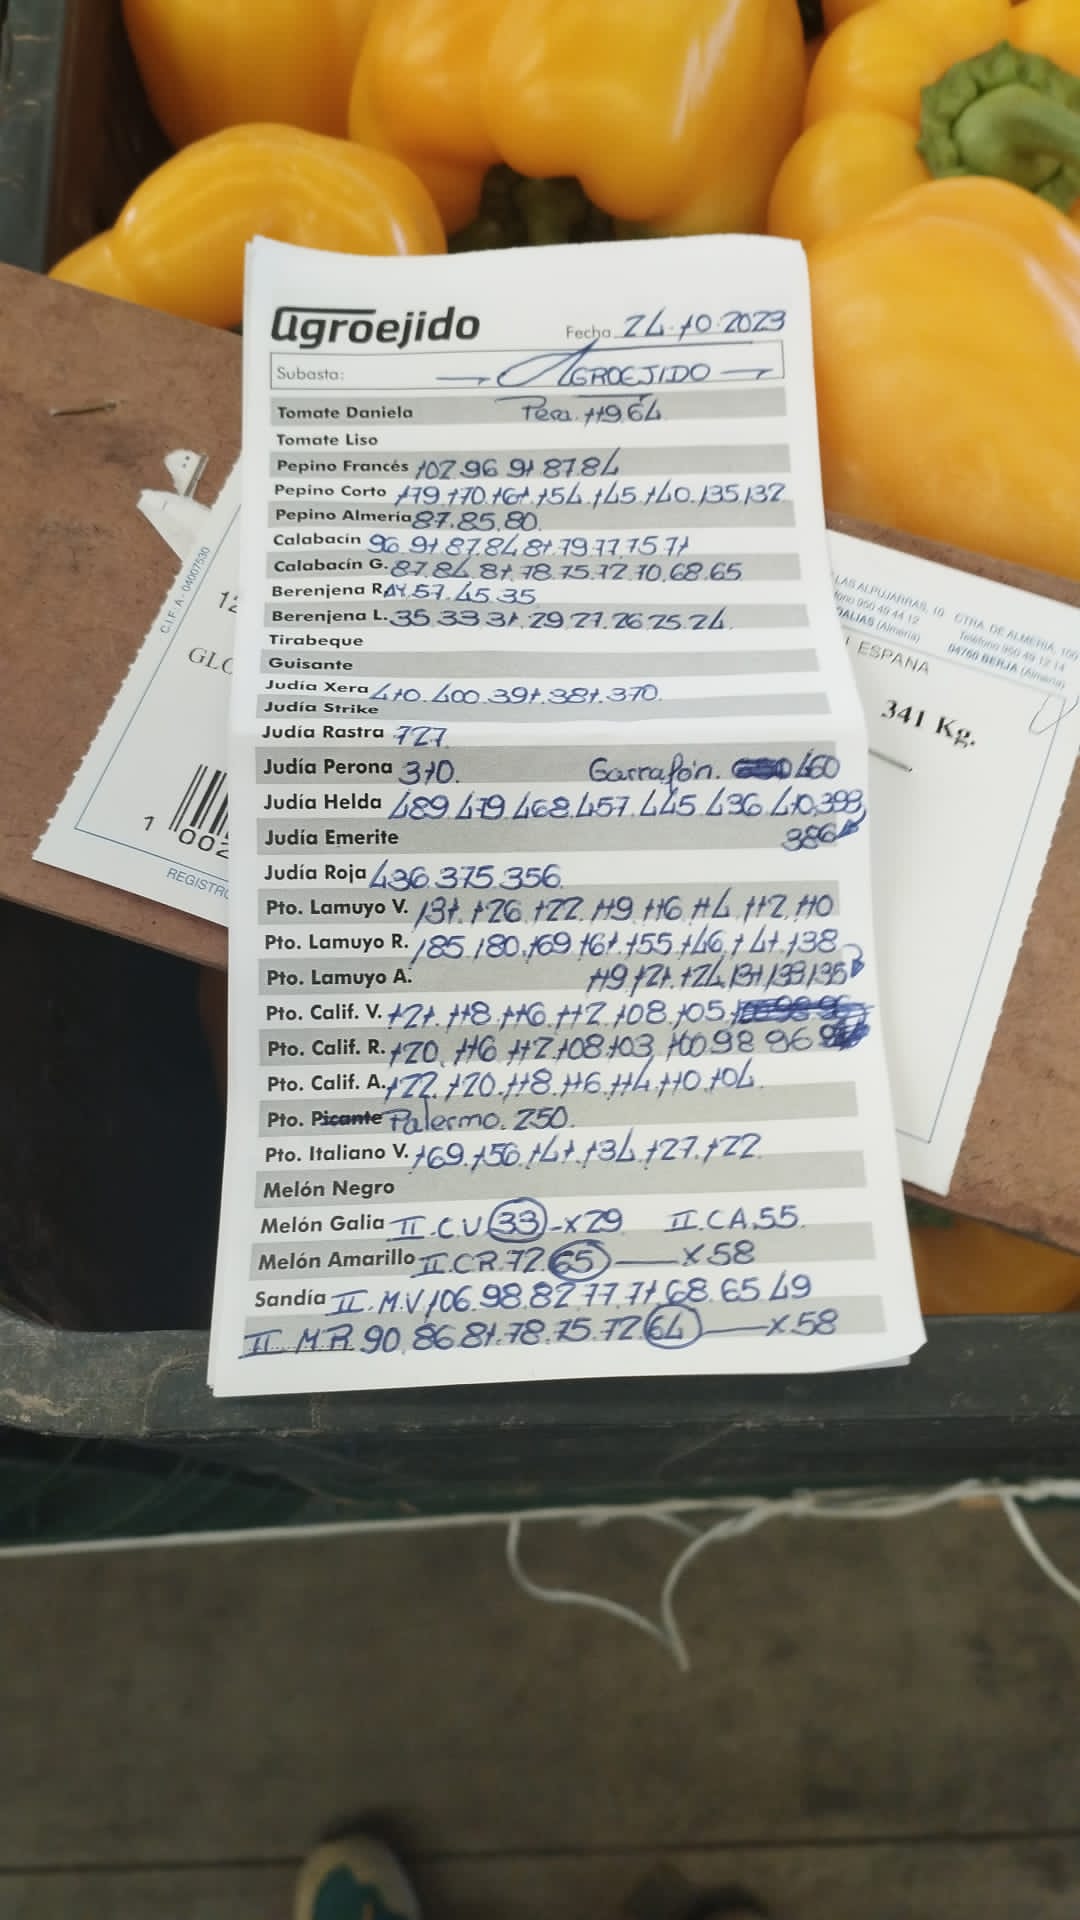 agroejido
Fecha 24.10.2023
Subasta: AGROEJIDO
Tomate Daniela Pera. 119.64
Tomate Liso
Pepino Francés 102.96.91.87.84
Pepino Corto 179.170.161.154.145.140.135.132
Pepino Almería 87.85.80.
Calabacín 96.91.87.84.81.79.77.75.71
Calabacín G. 87.84.81.78.75.72.70.68.65
Berenjena R. 57.45.35
Berenjena L. 35.33.31.29.27.26.25.24.
Tirabeque
Guisante
Judía Xera 410.400.391.381.370.
Judía Strike
Judía Rastra 727.
Judía Perona 310. Garrafón. 460
Judía Helda 489.479.468.457.445.436.410.399
Judía Emerite 386
Judía Roja 436.375.356.
Pto. Lamuyo V. 131.126.122.119.116.114.112.110
Pto. Lamuyo R. 185.180.169.161.155.146.141.138
Pto. Lamuyo A. 119.121.124.131.133.135
Pto. Calif. V. 121.118.116.112.108.105.
Pto. Calif. R. 120.116.112.108.103.100.98.96
Pto. Calif. A. 122.120.118.116.114.110.104.
Pto. Picante Palermo. 250.
Pto. Italiano V. 169.156.141.134.127.122.
Melón Negro
Melón Galia II.C.V. 33 - x29 II.CA.55.
Melón Amarillo II.CR.72.65 — x58
Sandía II.M.V.106.98.82.77.71.68.65.49
II.M.R.90.86.81.78.75.72.64 — x.58
C.I.F. A - 04007530
12
GLO
1 002
REGISTRO
LAS ALPUJARRAS, 10 CTRA. DE ALMERIA, 100
950 49 44 12 Teléfono 950 49 12 14
DALIAS (Almería) 04760 BERJA (Almería)
ESPAÑA
341 Kg.